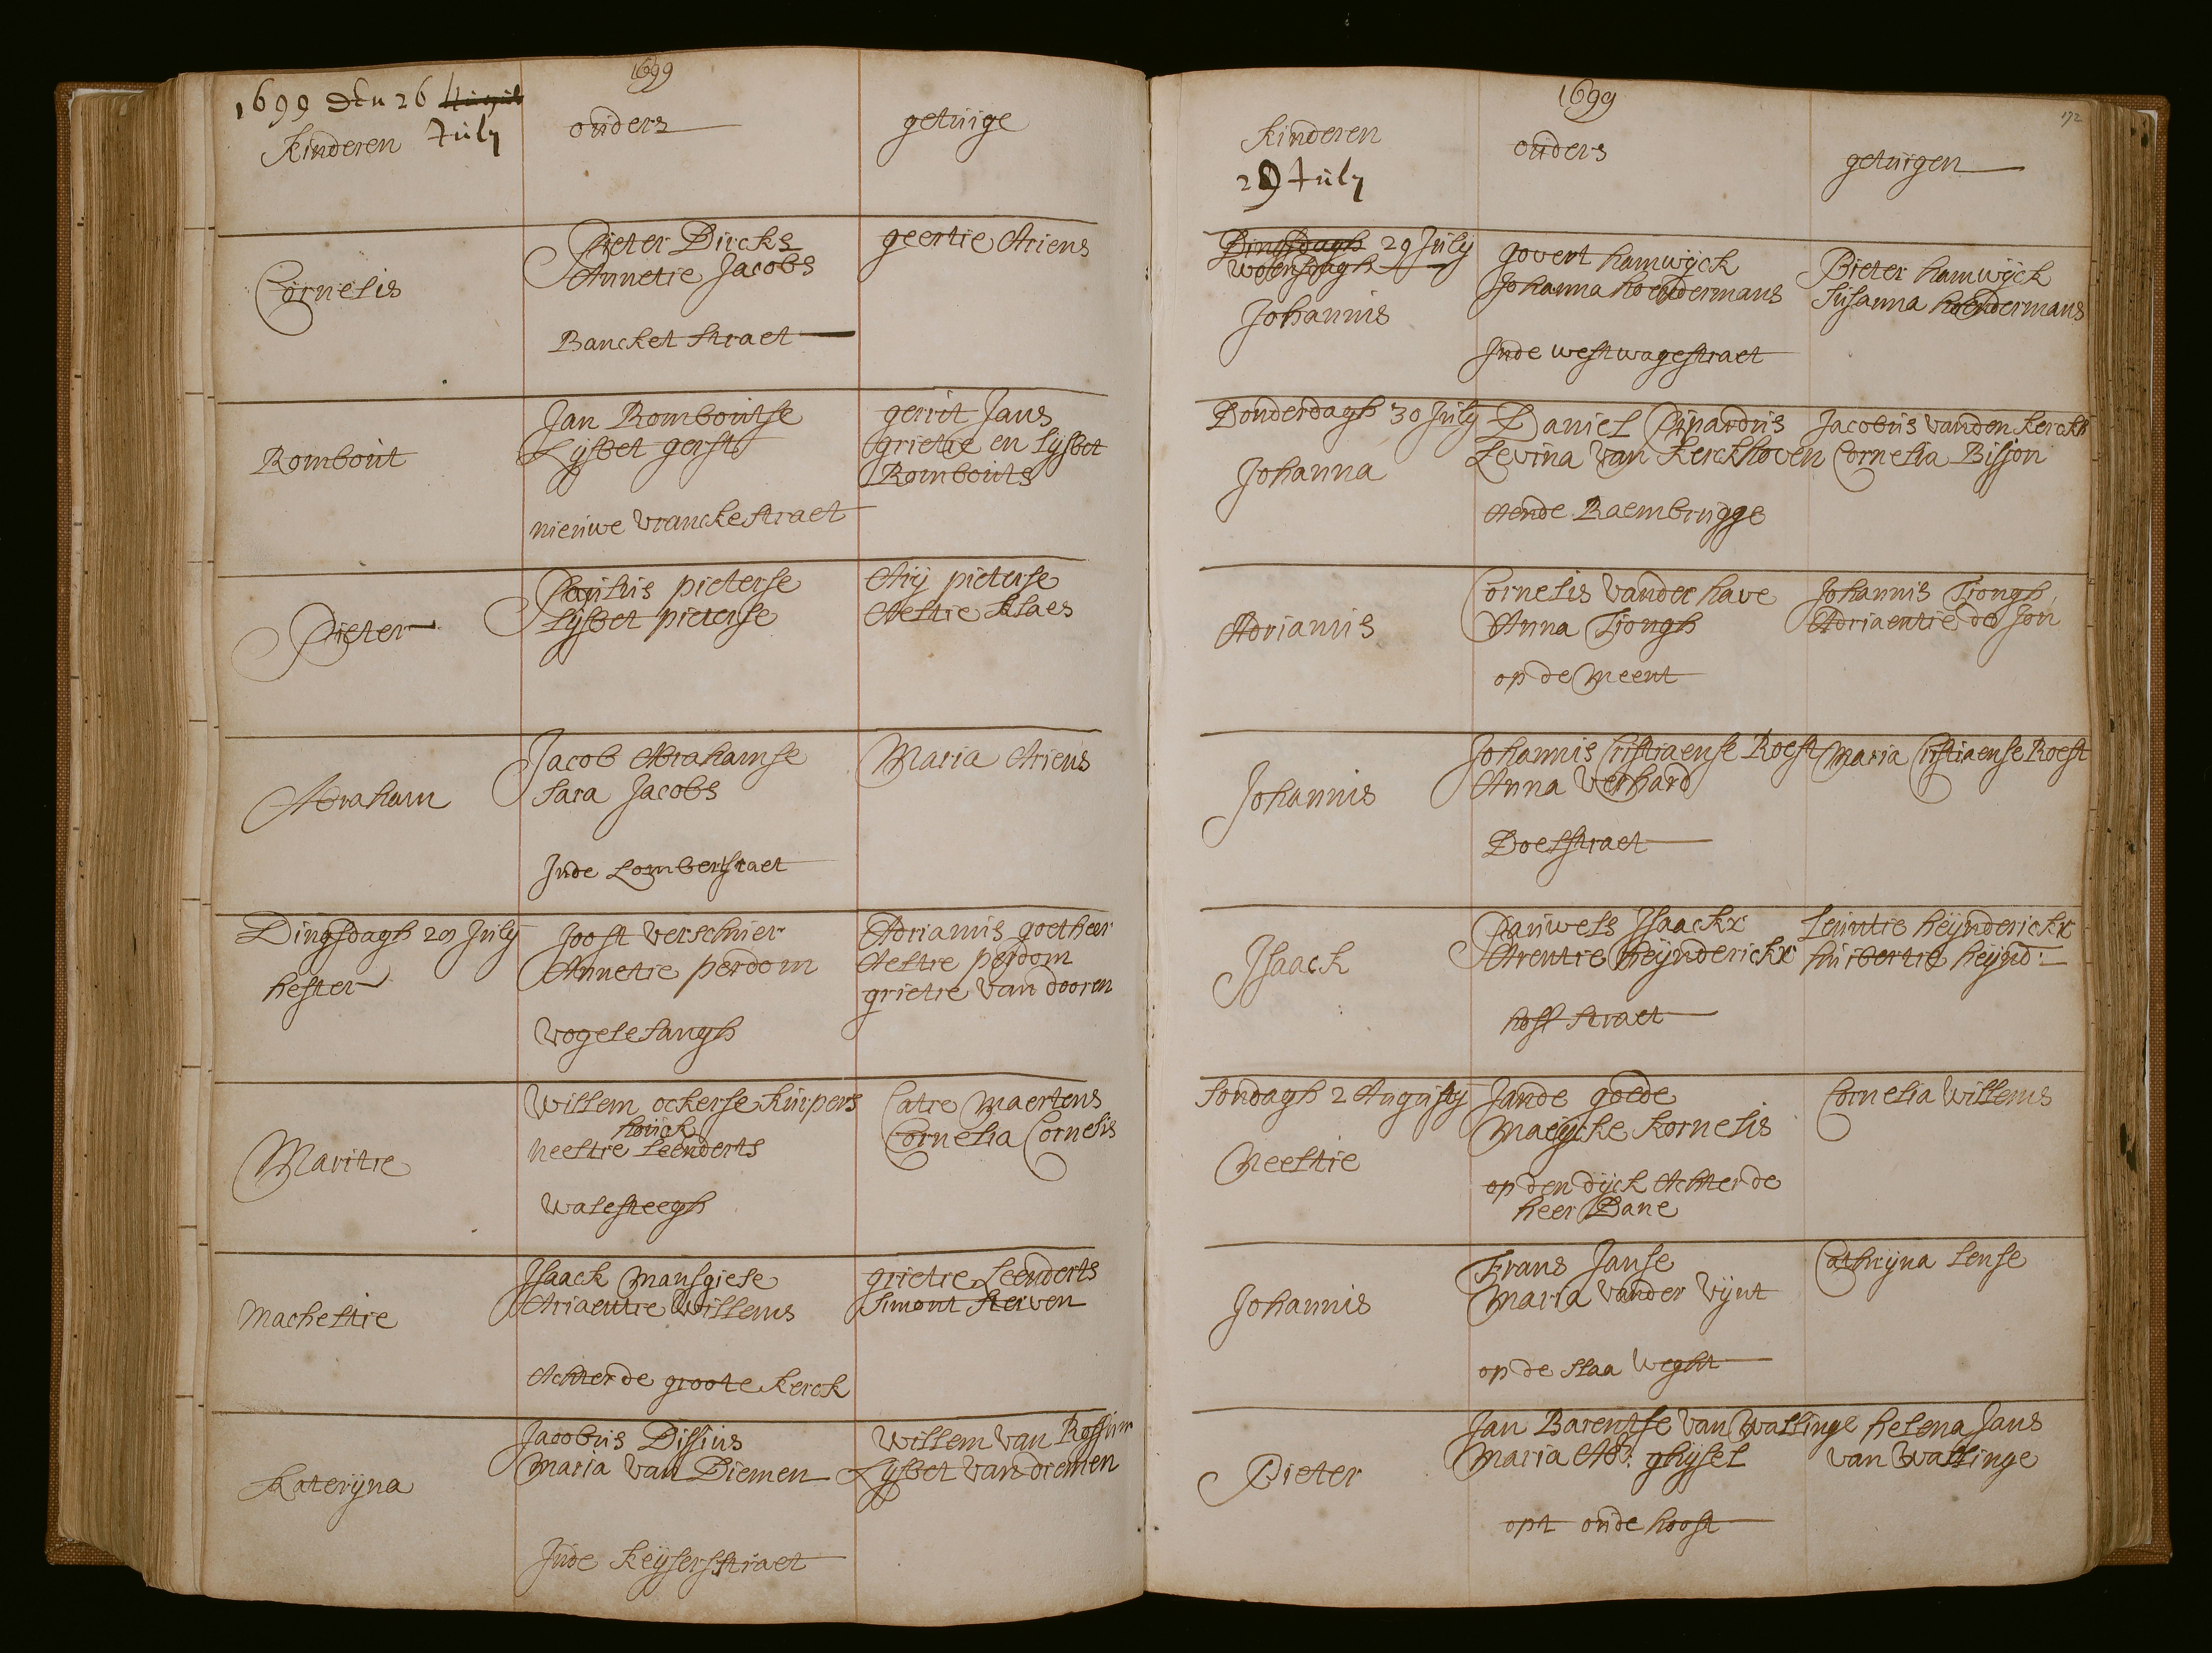 1699
1699 den 26 August
Kinderen July
ouders
getuige
Cornelis
Pieter Dircks
Annetie Jacobs
Bancket straet
geertie Ariens
Rombout
Jan Romboutse
Lysbet gerst
nieuwe vranckestraet
gerrit Jans
grietie en lysbet
Rombouts
Pieter
Paulus pieterse
Lysbet pieterse
Arij pieterse
Aeltie Klaes
Abraham
Jacob Abrahamse
Sara Jacobs
Inde Lomberstraet
Maria Ariens
Dingsdagh 29 July
hester
Joost verschuer
Annetie perdom
vogelesangh
Adrianus goetheer
Aeltie perdom
grietie van dooren
Maritie
Willem ockerse Kuipers
houck
Neeltie Leenderts
Walesteegh
Catie Maertens
Cornelia Cornelis
Macheltie
Isaack Mansgiele
Ariaentie Willems
Achter de groote Kerck
grietie Leenderts
Simont Steiven
Kateryna
Jacobus Dissius
Maria van Diemen
Inde Keyserstraet
Willem van Rossum
Lysbet van diemen
1699
172
Kinderen
29 July
ouders
getuigen
Dinssdagh 29 July
Woensdagh
Johannis
Govert hamwyck
Johanna hoendermans
Inde westwagestraet
Pieter hamwyck
Susanna hoendermans
Donderdagh 30 July
Johanna
Daniel
Levina van Kerckhoven
Aende Raembrugge
Jacobus vanden Kerckh
Cornelia Bisjon
Adrianus
Cornelis vander have
Anna Tjongh
op de Meent
Johannis Tjongh
Adriaentie de Jon
Johannis
Johannis Cristiaense Roest
Anna Verhard
Doelstraet
Maria Cristiaense Roest
Isaack
Pauwels Isaackx
Arentie heynderickx
hoff straet
Leuntie heynderickx
huibertie heynd:
Sondagh 2 Augusty
Neeltie
Jan de goede
Maeycke Kornelis
op den dyck Achter de
heer Bane
Cornelia Willems
Johannis
Frans Janse
Maria vander Vynt
op de slaa Weght
Cathryna Lense
Pieter
Jan Barentse van Wallinge
Maria Ab: ghysel
opt oude hooft
helena Jans
van Wallinge